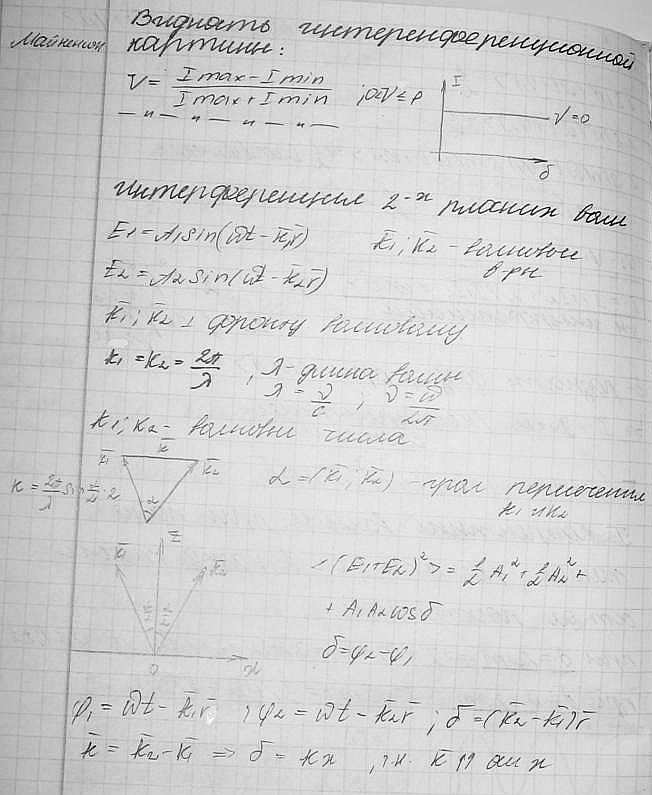 Видность интеренференционной
Майкельсон картины:
V = (I max - I min) / (I max + I min) ; 0≤V≤
I
V=0
δ
— " — " — " — " —
интерференция 2-х плоских волн
E1 = A1 sin(ωt - k̄1r̄) k̄1; k̄2 - волновые
E2 = A2 sin(ωt - k̄2r̄) в-ры
k̄1; k̄2 ⊥ фронту волновому
k1 = k2 = 2π/λ , λ - длина волны
λ = ν/c ; ν = ω/2π
k1; k2 - волновые числа
k̄1 k̄ k̄2
α
k = 2π/λ sin α/2 · 2 α = (k̄1; k̄2) - угол пересечения
k1 и k2
z
k̄1 k̄2
α/2 α/2
0 x
<(E1+E2)²> = 1/2 A1² + 1/2 A2² +
+ A1A2 cosδ
δ = φ2 - φ1
φ1 = ωt - k̄1r̄ , φ2 = ωt - k̄2r̄ ; δ = (k̄2 - k̄1)r̄
k̄ = k̄2 - k̄1 => δ = kx , т.к. k̄ ↑↑ оси x